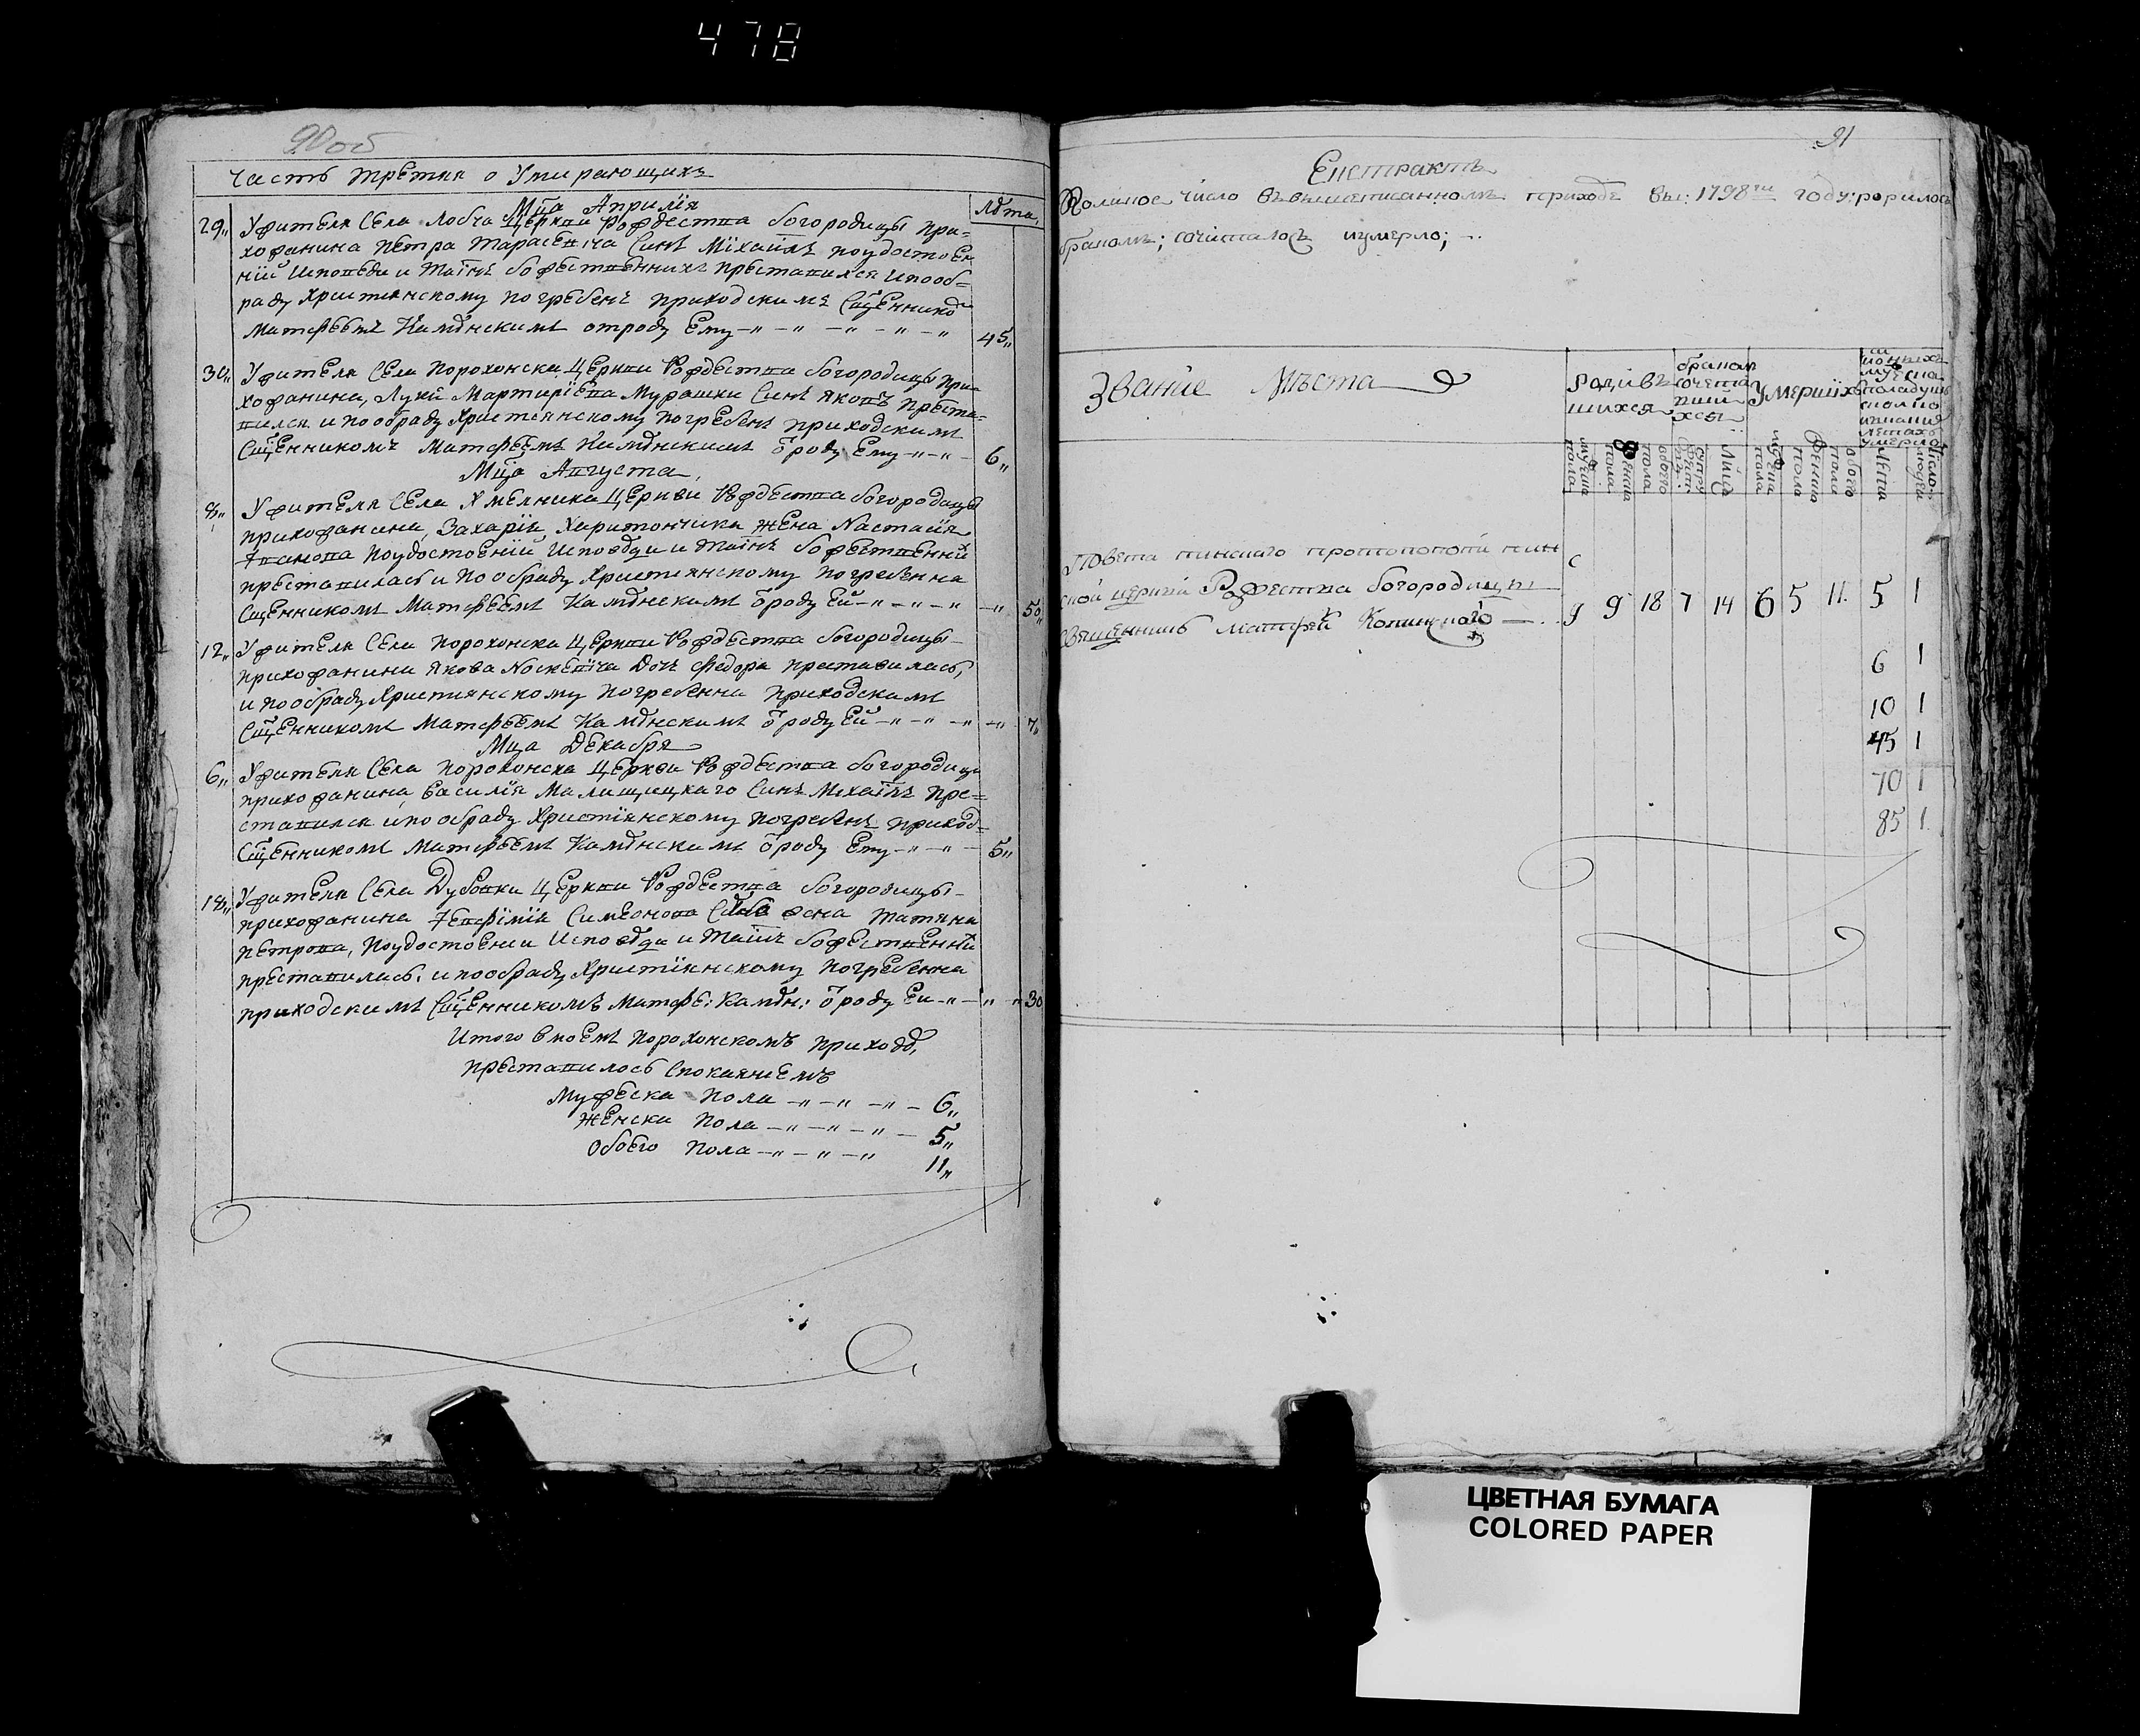 478
90 об
Часть третия о Умирающихъ
Мца Априлія
Лѣта
29„ У жителя Села Лобча Церкви Рождества богородицы при=
хожанина Петра Тарасевича Синъ Міхаилъ поудостоен
ній Исповѣди и Таїнъ божественнихъ преставился и пооб=
раду Християнскому погребенъ приходскимъ Сщенникѡ
Матфѣемъ Камѣнскимъ отроду Ему 45„
30„ У жителя Села Порохонска Церкви Рождества богородицы при=
хожанина, Луки Мартирїева Мурашки Синъ Яковъ преста=
вился и пообраду Християнскому погребенъ приходскимъ
Сщенникомъ Матфѣемъ Камѣнскимъ ѿроду Ему 6„
Мца Августа
8„ У жителя Села Хмелника Церкви Рождества богородицы
прихожанина, Захарїя Харитончика жена Настасїя
поудостоенїй Исповѣди и Таїнъ божественнй
преставилась и пообраду Християнскому погребенна
Сщенникомъ Матфѣемъ Камѣнскимъ ѿроду Ей 50„
12„ У жителя Села Порохонска Церкви Рождества богородицы
прихожанина Якова Носкевїча Дочь Федора преставилась,
и пообраду Християнскому погребенна приходскимъ
Сщенникомъ Матфѣемъ Камѣнскимъ ѿроду Ей 7„
Мца Декабря
6„ У жителя Села Порохонска Церкви Рождества богородицы
прихожанина, Василїя Малищицкаго Синъ Міхаїлъ пре=
ставился и пообраду Християнскому погребенъ приход=
Сщенникомъ Матфѣемъ Камѣнскимъ ѿроду Ему 5„
18„ У жителя Села Дубовки Церкви Рождества богородицы
прихожанина Симеонова жена Татяна
Петрова, поудостоении Исповѣди и Таїнъ божественнй
преставилась, и пообраду Християнскому погребенна
приходскимъ Сщенникомъ Матфе: Камѣн: ѿроду Еи 30
Итого в моемъ Порохонскомъ приходѣ,
преставилось Спокаяниемъ
Мужеска пола 6„
Женска пола 5„
Обоего пола 11„
91
Екстрактъ
Коликое число въвышеписанномъ приходѣ въ: 1798м году: родилось
бракомъ; сочиталось иумерло;
Званіе Мѣста
Родив
шихся
бракомъ
сочета
вши
хся
Умершихъ
мужеска пола
женска пола
обоего пола
Лицъ
мужеска пола
женска пола
обоего пола
Лѣта
число людей
Повета пинскаго протопопопи пин
ской церкви Рождества богородицы
священникъ Матфей
9 9 18 7 14 6 5 11 5 1
6 1
10 1
45 1
70 1
85 1
ЦВЕТНАЯ БУМАГА
COLORED PAPER